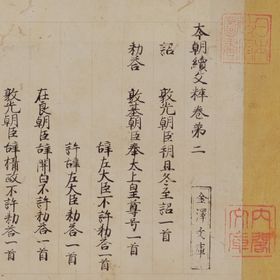 本朝續文粹卷第二
金澤文庫
詔 敦光朝臣朔旦冬至詔一首
勅答 敦基朝臣奉太上皇尊号一首
辞左大臣不許勅答一首
許辞左大臣勅答一首
在良朝臣辞關白不許勅答一首
敦光朝臣辞攝政不許勅答一首
内閣文庫